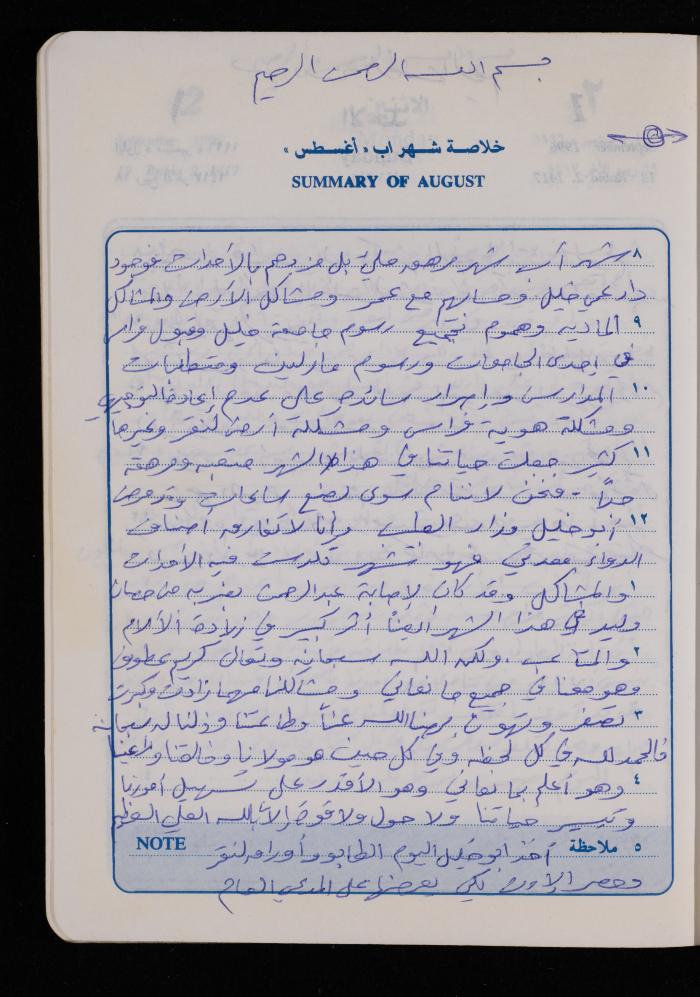 بسم الله الرحمن الرحيم
خلاصة شهر اب «أغسطس»
SUMMARY OF AUGUST
٨ شهر آب شهر مرهق مليء بل مزدحم بالأحداث فوجود
دار عمي خليل وحسابهم مع عمر ومشاكل الأرض والمشاكل
٩ المادية وهموم تجميع رسوم جامعة خليل وقبول فراس
في إحدى الجامعات ورسوم مارلين ومتطلبات
١٠ المدارس وإصرار سائد على عدم إعادة التوجيهي
ومشكلة هوية فراس ومشكلة أرض لنقر وغيرها
١١ كثير جعلت حياتنا في هذا الشهر متعبة ومرهقة
جداً - فنحن لا ننام سوى بضع ساعات
١٢ أبو خليل وزار الطبيب وأنا لا تفارقه أصناف
الدواء معدتي فهو شهر تكدست فيه الأحداث
١ والمشاكل وقد كان لإصابة عبدالرحمن بضربة من حصان
وليد في هذا الشهر أيضاً أثر كبير في زيادة الآلام
٢ والمتاعب. ولكن الله سبحانه وتعالى كريم عطوف
وهو معنا في جميع ما نعاني ومشاكلنا مهما زادت وكبرت
٣ تصغر وتهون برضا الله عنا وطاعتنا وذلنا له سبحانه
فالحمد لله في كل لحظة وفي كل حين هو مولانا وخالقنا وراعينا
٤ وهو أعلم بما نعاني وهو الأقدر على تسهيل أمورنا
وتيسير حياتنا ولا حول ولا قوة إلا بالله العلي العظيم
NOTE ٥ ملاحظة أخذ أبو خليل اليوم الطابو وأوراق لنقر
وحصر الإرث لكي يعرضها على المدعي العام